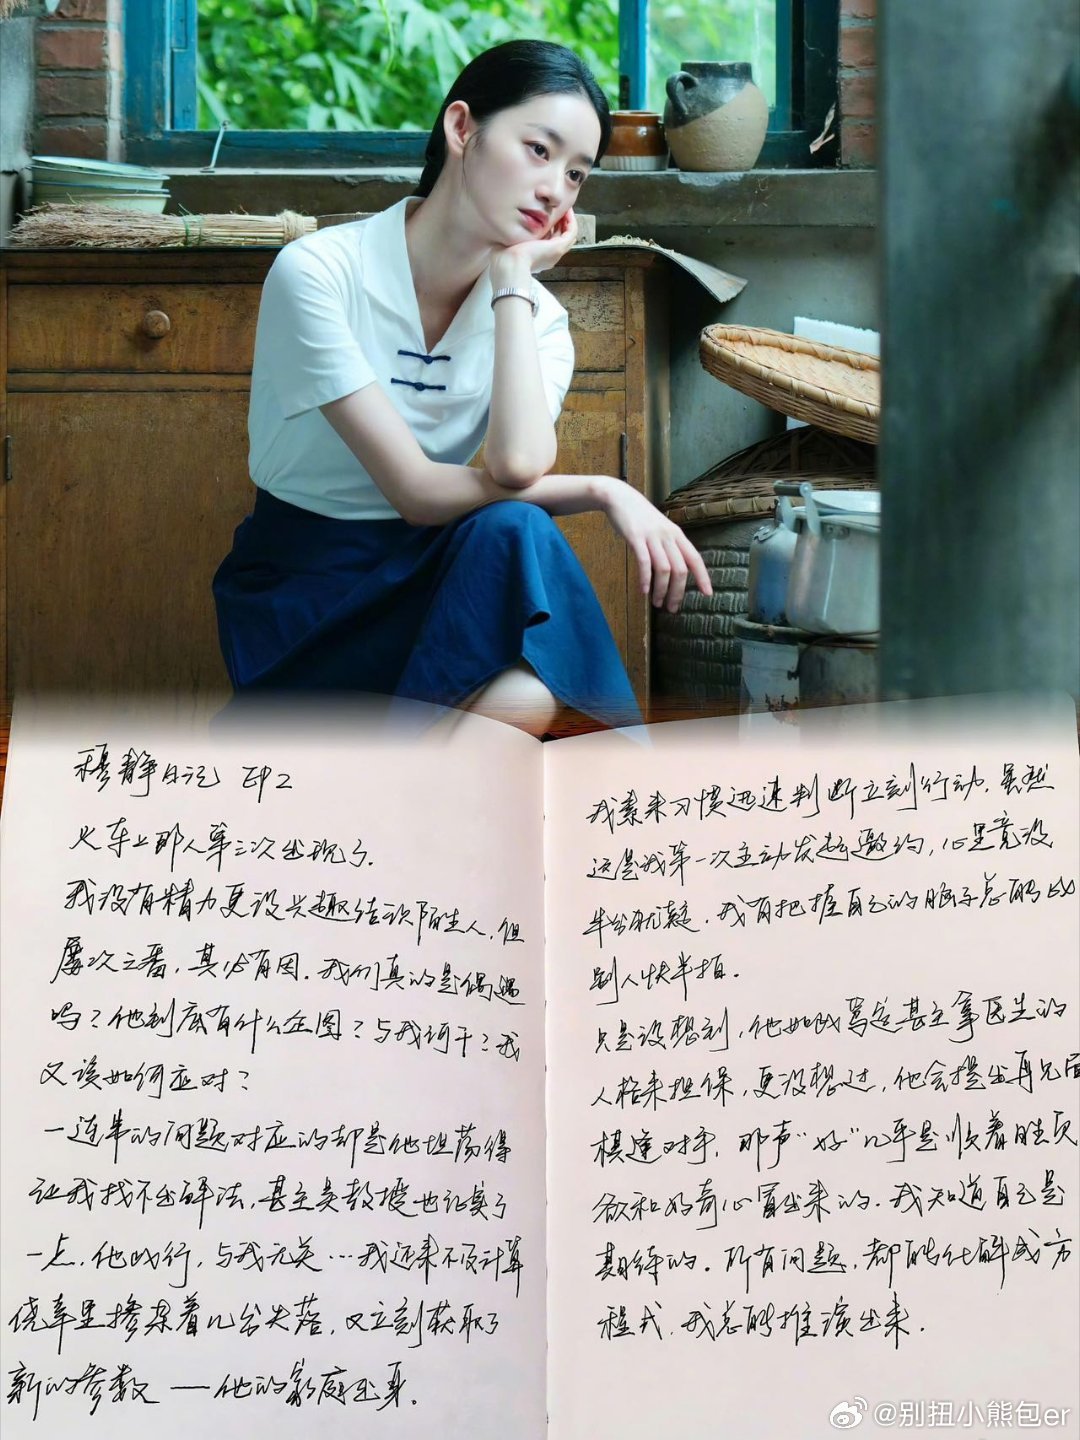 穆静日记 EP2
火车上那人第三次出现了.
我没有精力更没兴趣结识陌生人,但
屡次三番,其必有因.我们真的是偶遇
吗?他到底有什么企图?与我何干?我
又该如何应对?
一连串的问题对应的却是他坦荡得
让我找不出解法,甚至吴教授也证实了
一点.他此行,与我无关…我还来不及计算
侥幸里掺杂着几分失落,又立刻获取了
新的参数——他的家庭出身.
我素来习惯迅速判断立刻行动.虽然
这是我第一次主动发起邀约,心里竟没
半分犹疑.我有把握自己的脑子总能比
别人快半拍.
只是没想到,他如此笃定甚至拿医生的
人格来担保,更没想过,他会提出再兄面
棋逢对手.那声“好”几乎是顺着胜负
欲和好奇心冒出来的.我知道自己是
期待的.所有问题,都能化解成方
程式,我总能推演出来.
@别扭小熊包er